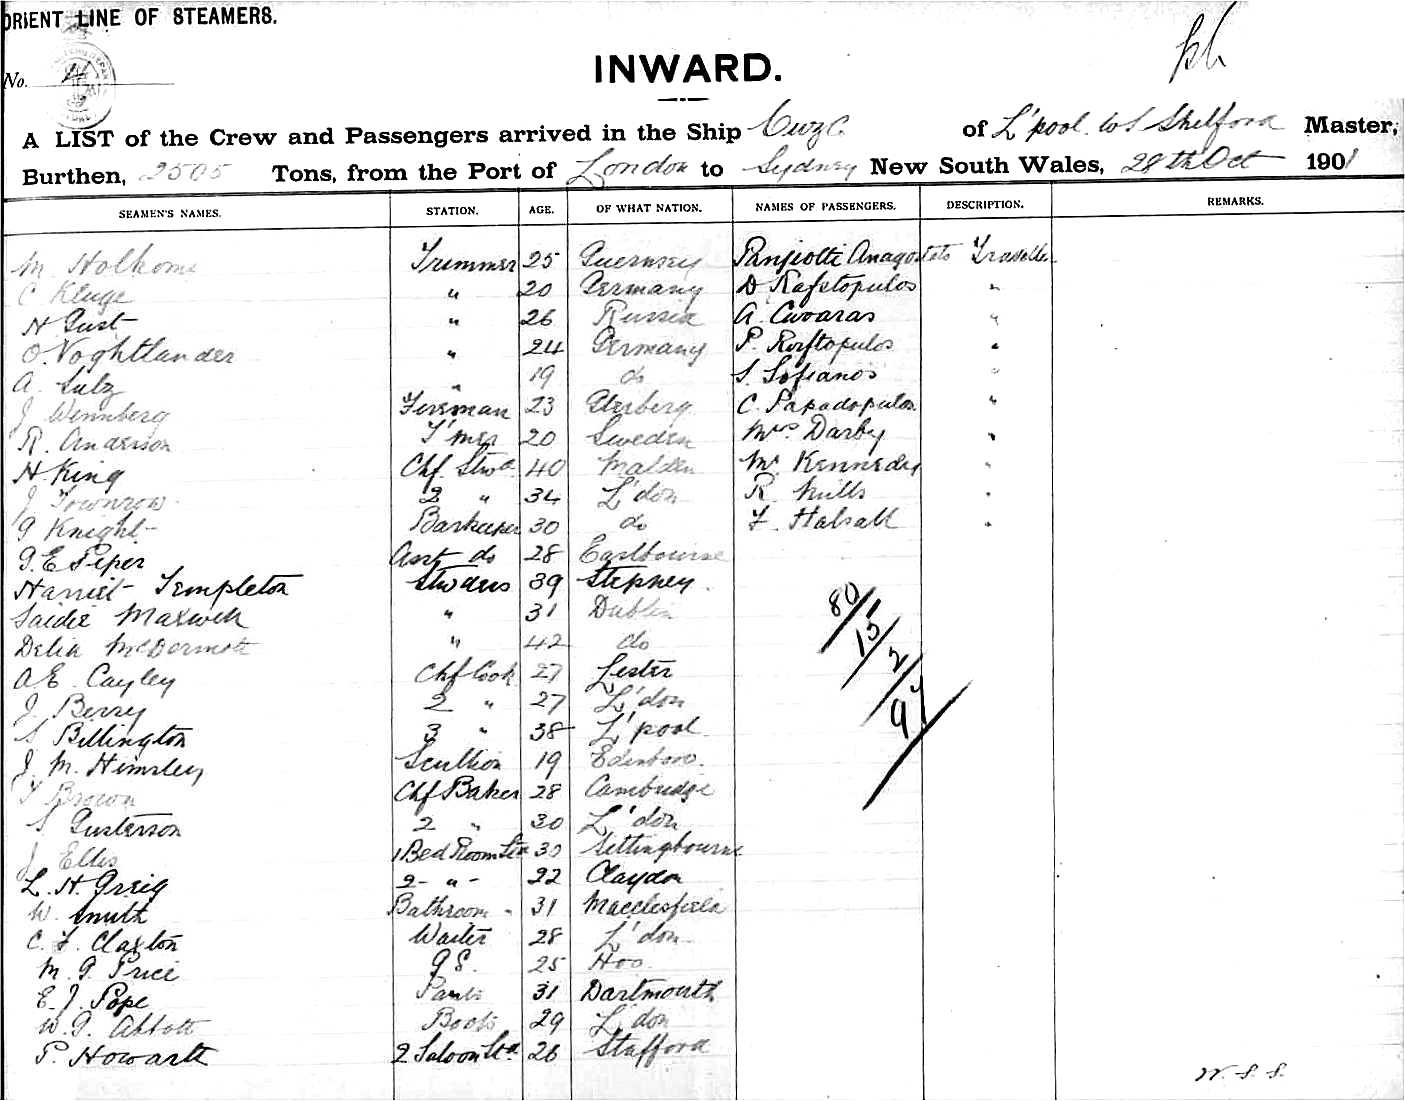 ORIENT LINE OF STEAMERS.
No.
INWARD.
A LIST of the Crew and Passengers arrived in the Ship Cuzco of L'pool W S Shelford Master,
Burthen, 2505 Tons, from the Port of London to Sydney New South Wales, 28th Oct 1901
SEAMEN'S NAMES. STATION. AGE. OF WHAT NATION. NAMES OF PASSENGERS. DESCRIPTION. REMARKS.
M. Holkome Trimmer 25 Guernsey Panjiotti Anagostato Traveller
C Kluge " 20 Germany D Rafetopulos "
H Gust " 26 Russia A. Cuvaras "
O. Voghtlander " 24 Germany P. Rafetopulos "
A. Sulz " 19 do S. Sofianos "
J Wennberg Fireman 23 C. Papadopulos "
R. Anderson T'mer 20 Sweden Mrs Darby "
H King Chf. Stwd 40 Malden Mr Kennedy "
J Townrow 2 " 34 L'don R. Mills "
G Knight Barkeeper 30 do F. Halsall "
G. E Piper Asst do 28 Eastbourne
Harriet Templeton Stwdess 39 Stepney.
Saidie Maxwell " 31 Dublin
Delia McDermott " 42 do
A E. Cayley Chf Cook 27 Lester
J. Berry 2 " 27 L'don
S Billington 3 " 38 L'pool
J. M. Himsley Scullion 19 Edinboro.
T Brown Chf Baker 28 Cambridge
S Gusterson 2 " 30 L'don
J Ellis 1 Bed Room Stw 30 Sittingbourne
L. H. Greig 2 - " - 22 Claydon
W. Smith Bathroom " 31 Macclesfield
C. F. Claxton Waiter 28 L'don
M. G. Price G S. 25 Hoo
E. J. Pope Pants 31 Dartmouth
W. G. Abbott Boots 29 L'don
P. Howarth 2 Saloon Std 26 Stafford
80
15
2
97
W. S. S.